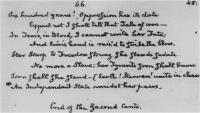 66.
48.
Six hundred years! Oppression has its date
Expect not I shall tell that Tale of woe—
In Tears, in Blood, I cannot write her Fate;
And Erin's hand is rais'd to strike the blow.
Star
No more a Slave; her Tyrants soon shall know
Soon shall She stand—( Earth! Heaven! unite in
An Independent State amidst her peers.
End of the Second Canto.